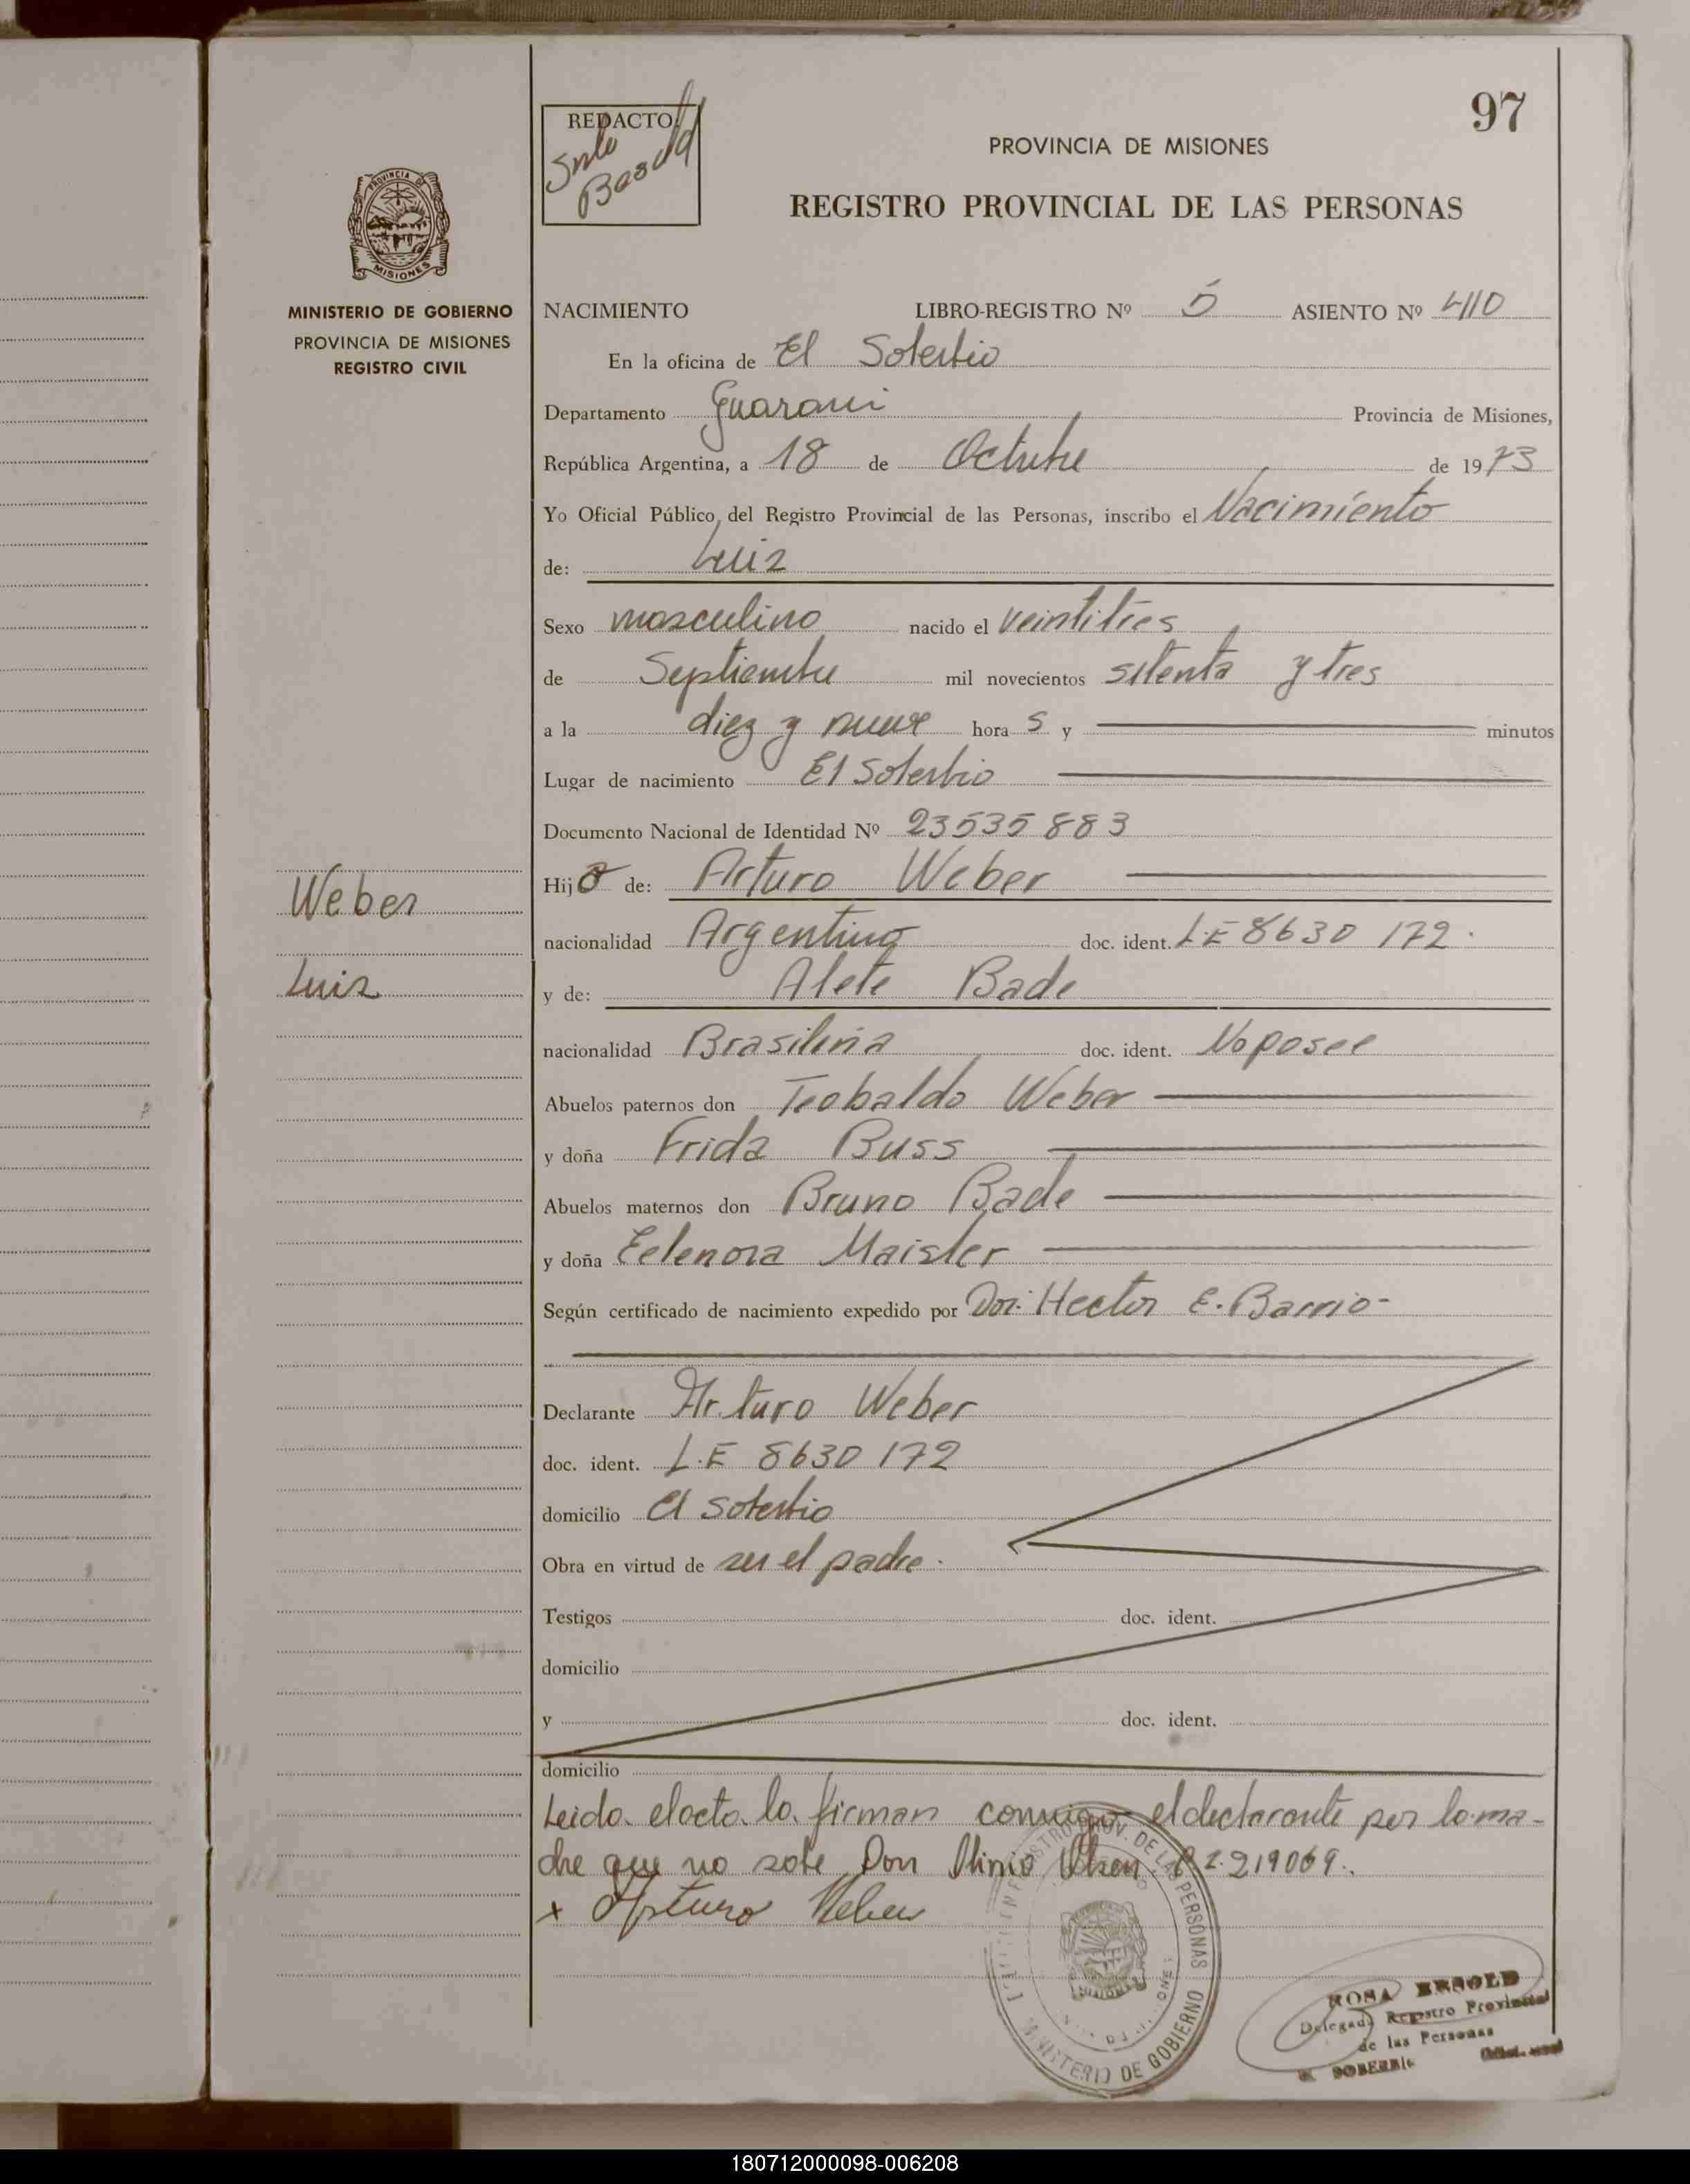 97
REDACTO:
PROVINCIA DE MISIONES
REGISTRO PROVINCIAL DE LAS PERSONAS
PROVINCIA DE
MISIONES
MINISTERIO DE GOBIERNO
PROVINCIA DE MISIONES
REGISTRO CIVIL
NACIMIENTO LIBRO-REGISTRO Nº 5 ASIENTO Nº 410
En la oficina de El Soberbio
Departamento Guarani Provincia de Misiones,
República Argentina, a 18 de Octubre de 1973
Yo Oficial Público, del Registro Provincial de las Personas, inscribo el Nacimiento
de: Luiz
Sexo masculino nacido el veintitres
de Septiembre mil novecientos setenta y tres
a la diez y nueve hora s y minutos
Lugar de nacimiento El Soberbio
Documento Nacional de Identidad Nº 23535883
Hijo de: Arturo Weber
Weber
nacionalidad Argentino doc. ident. L-E 8630 172.
Luiz
y de: Alete Bade
nacionalidad Brasileña doc. ident. No posee
Abuelos paternos don Teobaldo Weber
y doña Frida Buss
Abuelos maternos don Bruno Bade
y doña Eelenora Maisler
Según certificado de nacimiento expedido por Dor. Hector E. Barrio-
Declarante Arturo Weber
doc. ident. L.E 8630 172
domicilio El soberbio
Obra en virtud de ser el padre.
Testigos doc. ident.
domicilio
y doc. ident.
domicilio
Leido el acta la firman conmigo el declarante por la ma-
dre que no sabe Don Plinio Olsen C.I. 219069.
x Arturo Weber
PROV. DE LAS PERSONAS
MINISTERIO DE GOBIERNO
ROSA BESOLD
Delegada Registro Provincial
de las Personas
SOBERBIO
180712000098-006208